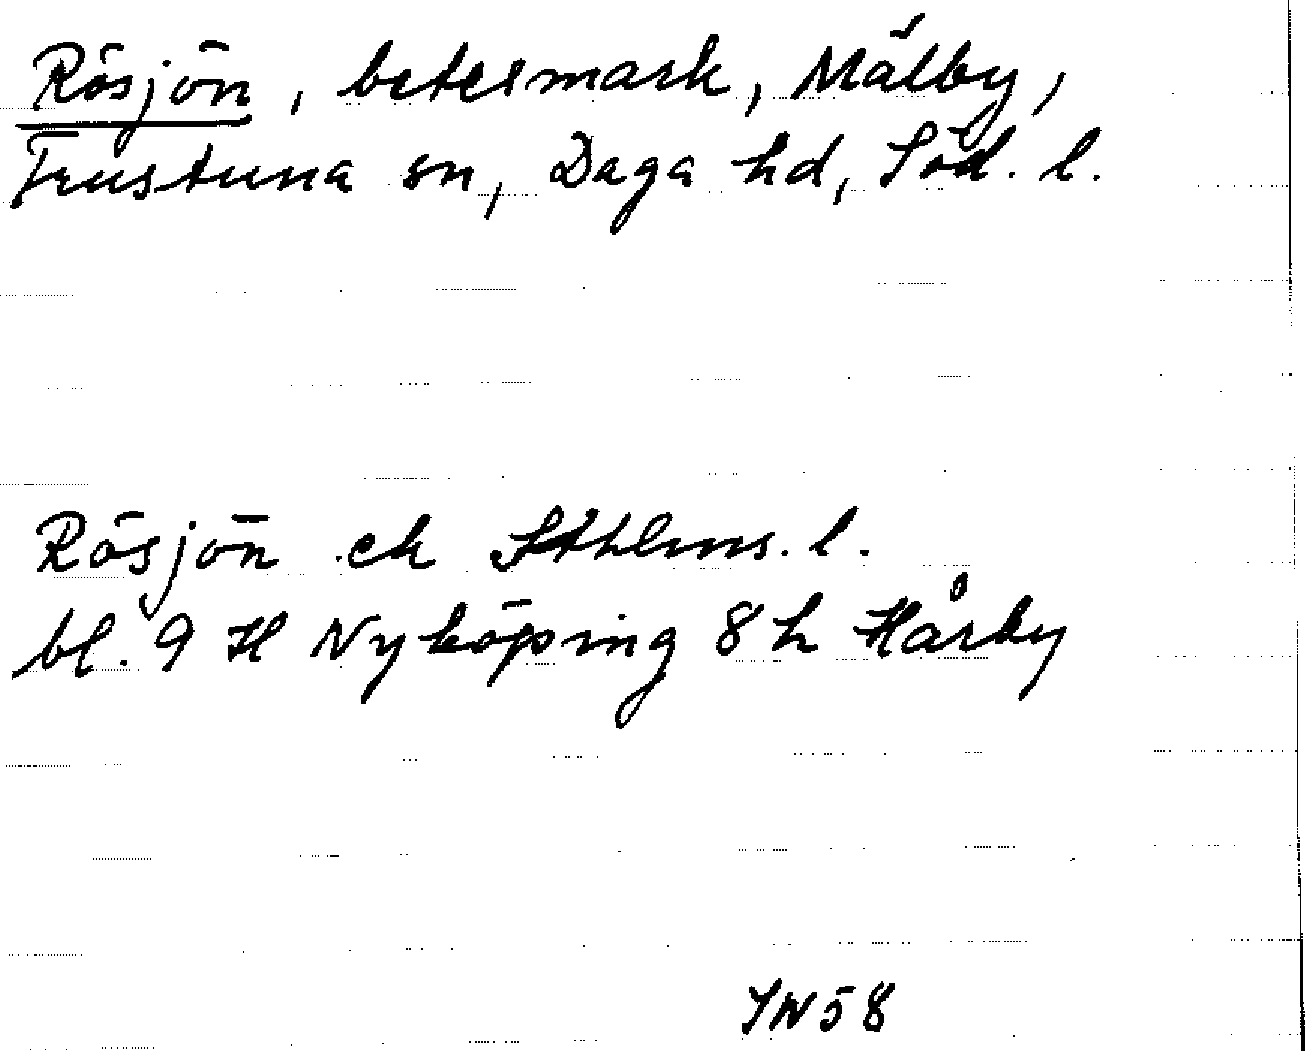 Rösjön, betesmark, Målby,
Frustuna sn, Daga hd, Söd. l.
Rösjön ek Sthlms. l.
bl. 9 H Nyköping 8 h Hårby
YN58